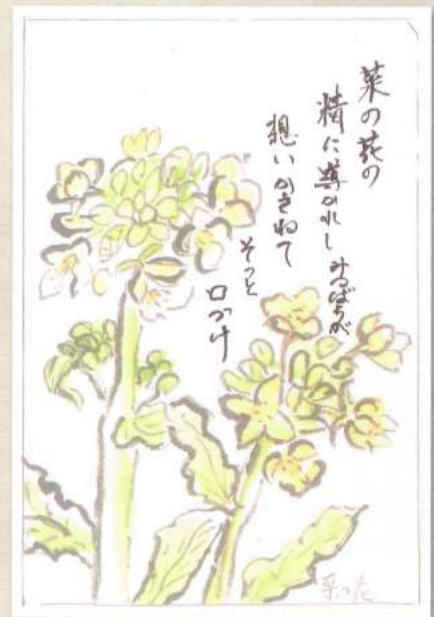 菜の花の
精に導かれし みつばちが
想いかさねて
そっと
口づけ
菜の花